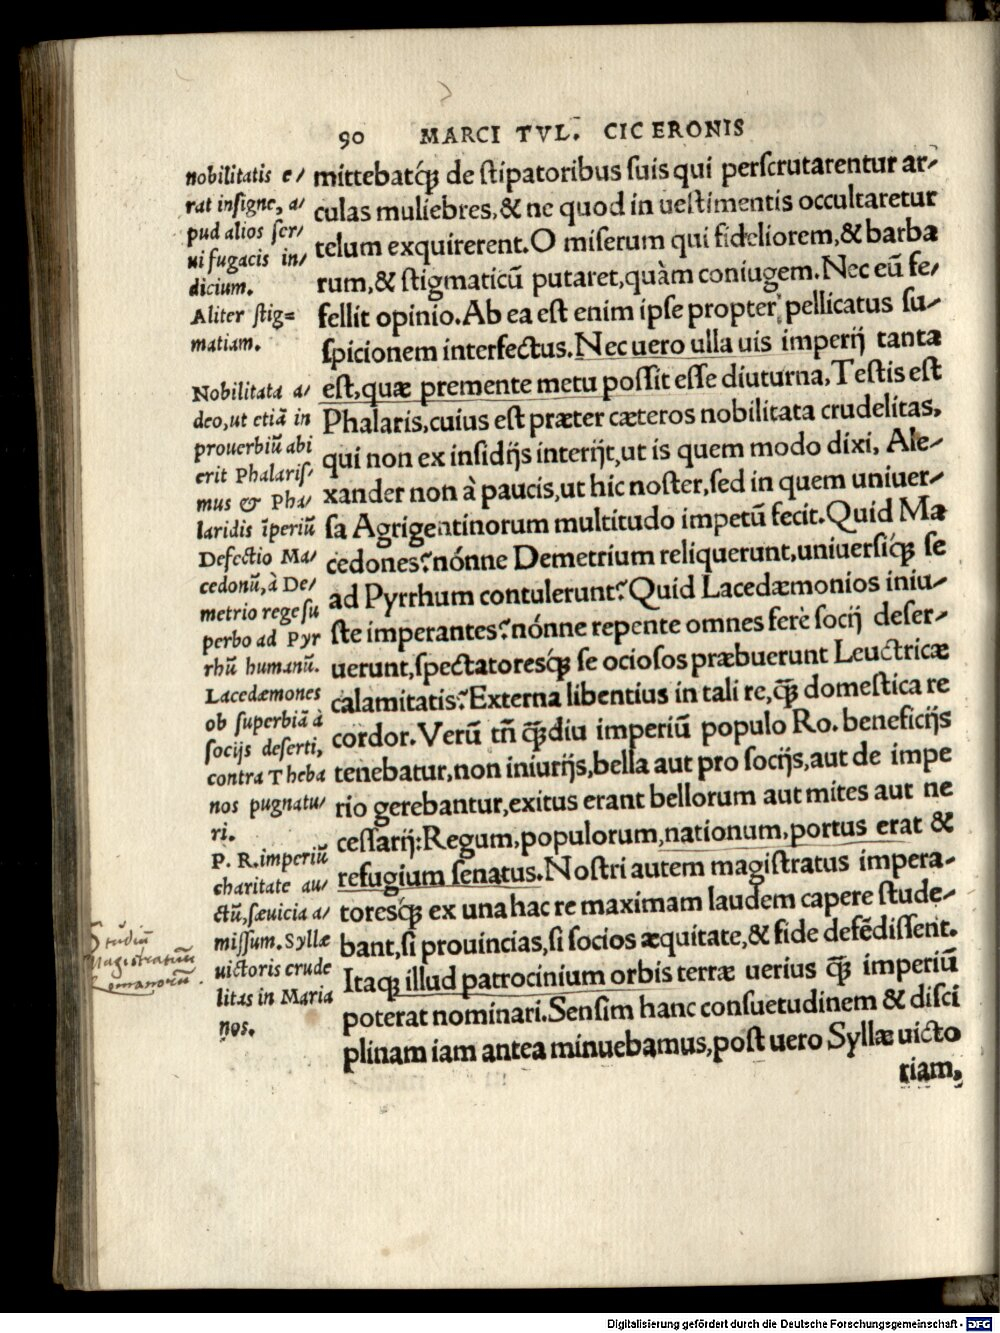 90 MARCI TVL. CICERONIS
nobilitatis e/
rat insigne, a/
pud alios ser/
ui fugacis in/
dicium.
Aliter stig=
matiam.
Nobilitata a/
deo,ut etiã in
prouerbiũ abi
erit Phalaris/
mus & Pha/
laridis ĩperiũ
Defectio Ma/
cedonũ,à De/
metrio rege su
perbo ad Pyr
rhũ humanũ.
Lacedæmones
ob superbiã à
socijs deserti,
contra Theba
nos pugnatu/
ri.
P. R. imperiũ
charitate au/
ctũ,sæuicia a/
missum. Syllæ
uictoris crude
litas in Maria
nos.
Studiũ
Magistratuum
Romanorũ.
mittebatq́; de ſtipatoribus ſuis qui perſcrutarentur ar-
culas muliebres,& ne quod in ueſtimentis occultaretur
telum exquirerent.O miſerum qui fideliorem,& barba
rum,& ſtigmaticũ putaret,quàm coniugem.Nec eũ fe-
fellit opinio.Ab ea eſt enim ipſe propter pellicatus ſu-
ſpicionem interfectus.Nec uero ulla uis imperij tanta
eſt,quæ premente metu poſſit eſſe diuturna,Teſtis eſt
Phalaris,cuius eſt præter cæteros nobilitata crudelitas,
qui non ex inſidijs interijt,ut is quem modo dixi, Ale-
xander non à paucis,ut hic noſter,ſed in quem uniuer-
ſa Agrigentinorum multitudo impetũ fecit.Quid Ma
cedones?nónne Demetrium reliquerunt,uniuerſiq́; ſe
ad Pyrrhum contulerunt?Quid Lacedæmonios iniu-
ſte imperantes?nónne repente omnes ferè ſocij deſer-
uerunt,ſpectatoresq́; ſe ocioſos præbuerunt Leuctricæ
calamitatis?Externa libentius in tali re,q̃; domeſtica re
cordor.Verũ tñ q̃;diu imperiũ populo Ro. beneficijs
tenebatur,non iniurijs,bella aut pro ſocijs,aut de impe
rio gerebantur,exitus erant bellorum aut mites aut ne
ceſſarij:Regum,populorum,nationum,portus erat &
refugium ſenatus.Noſtri autem magiſtratus impera-
toresq́; ex una hac re maximam laudem capere ſtude-
bant,ſi prouincias,ſi ſocios æquitate,& fide defẽdiſſent.
Itaq; illud patrocinium orbis terræ uerius q̃; imperiũ
poterat nominari.Senſim hanc conſuetudinem & diſci
plinam iam antea minuebamus,poſt uero Syllæ uicto
riam,
Digitalisierung gefördert durch die Deutsche Forschungsgemeinschaft - DFG